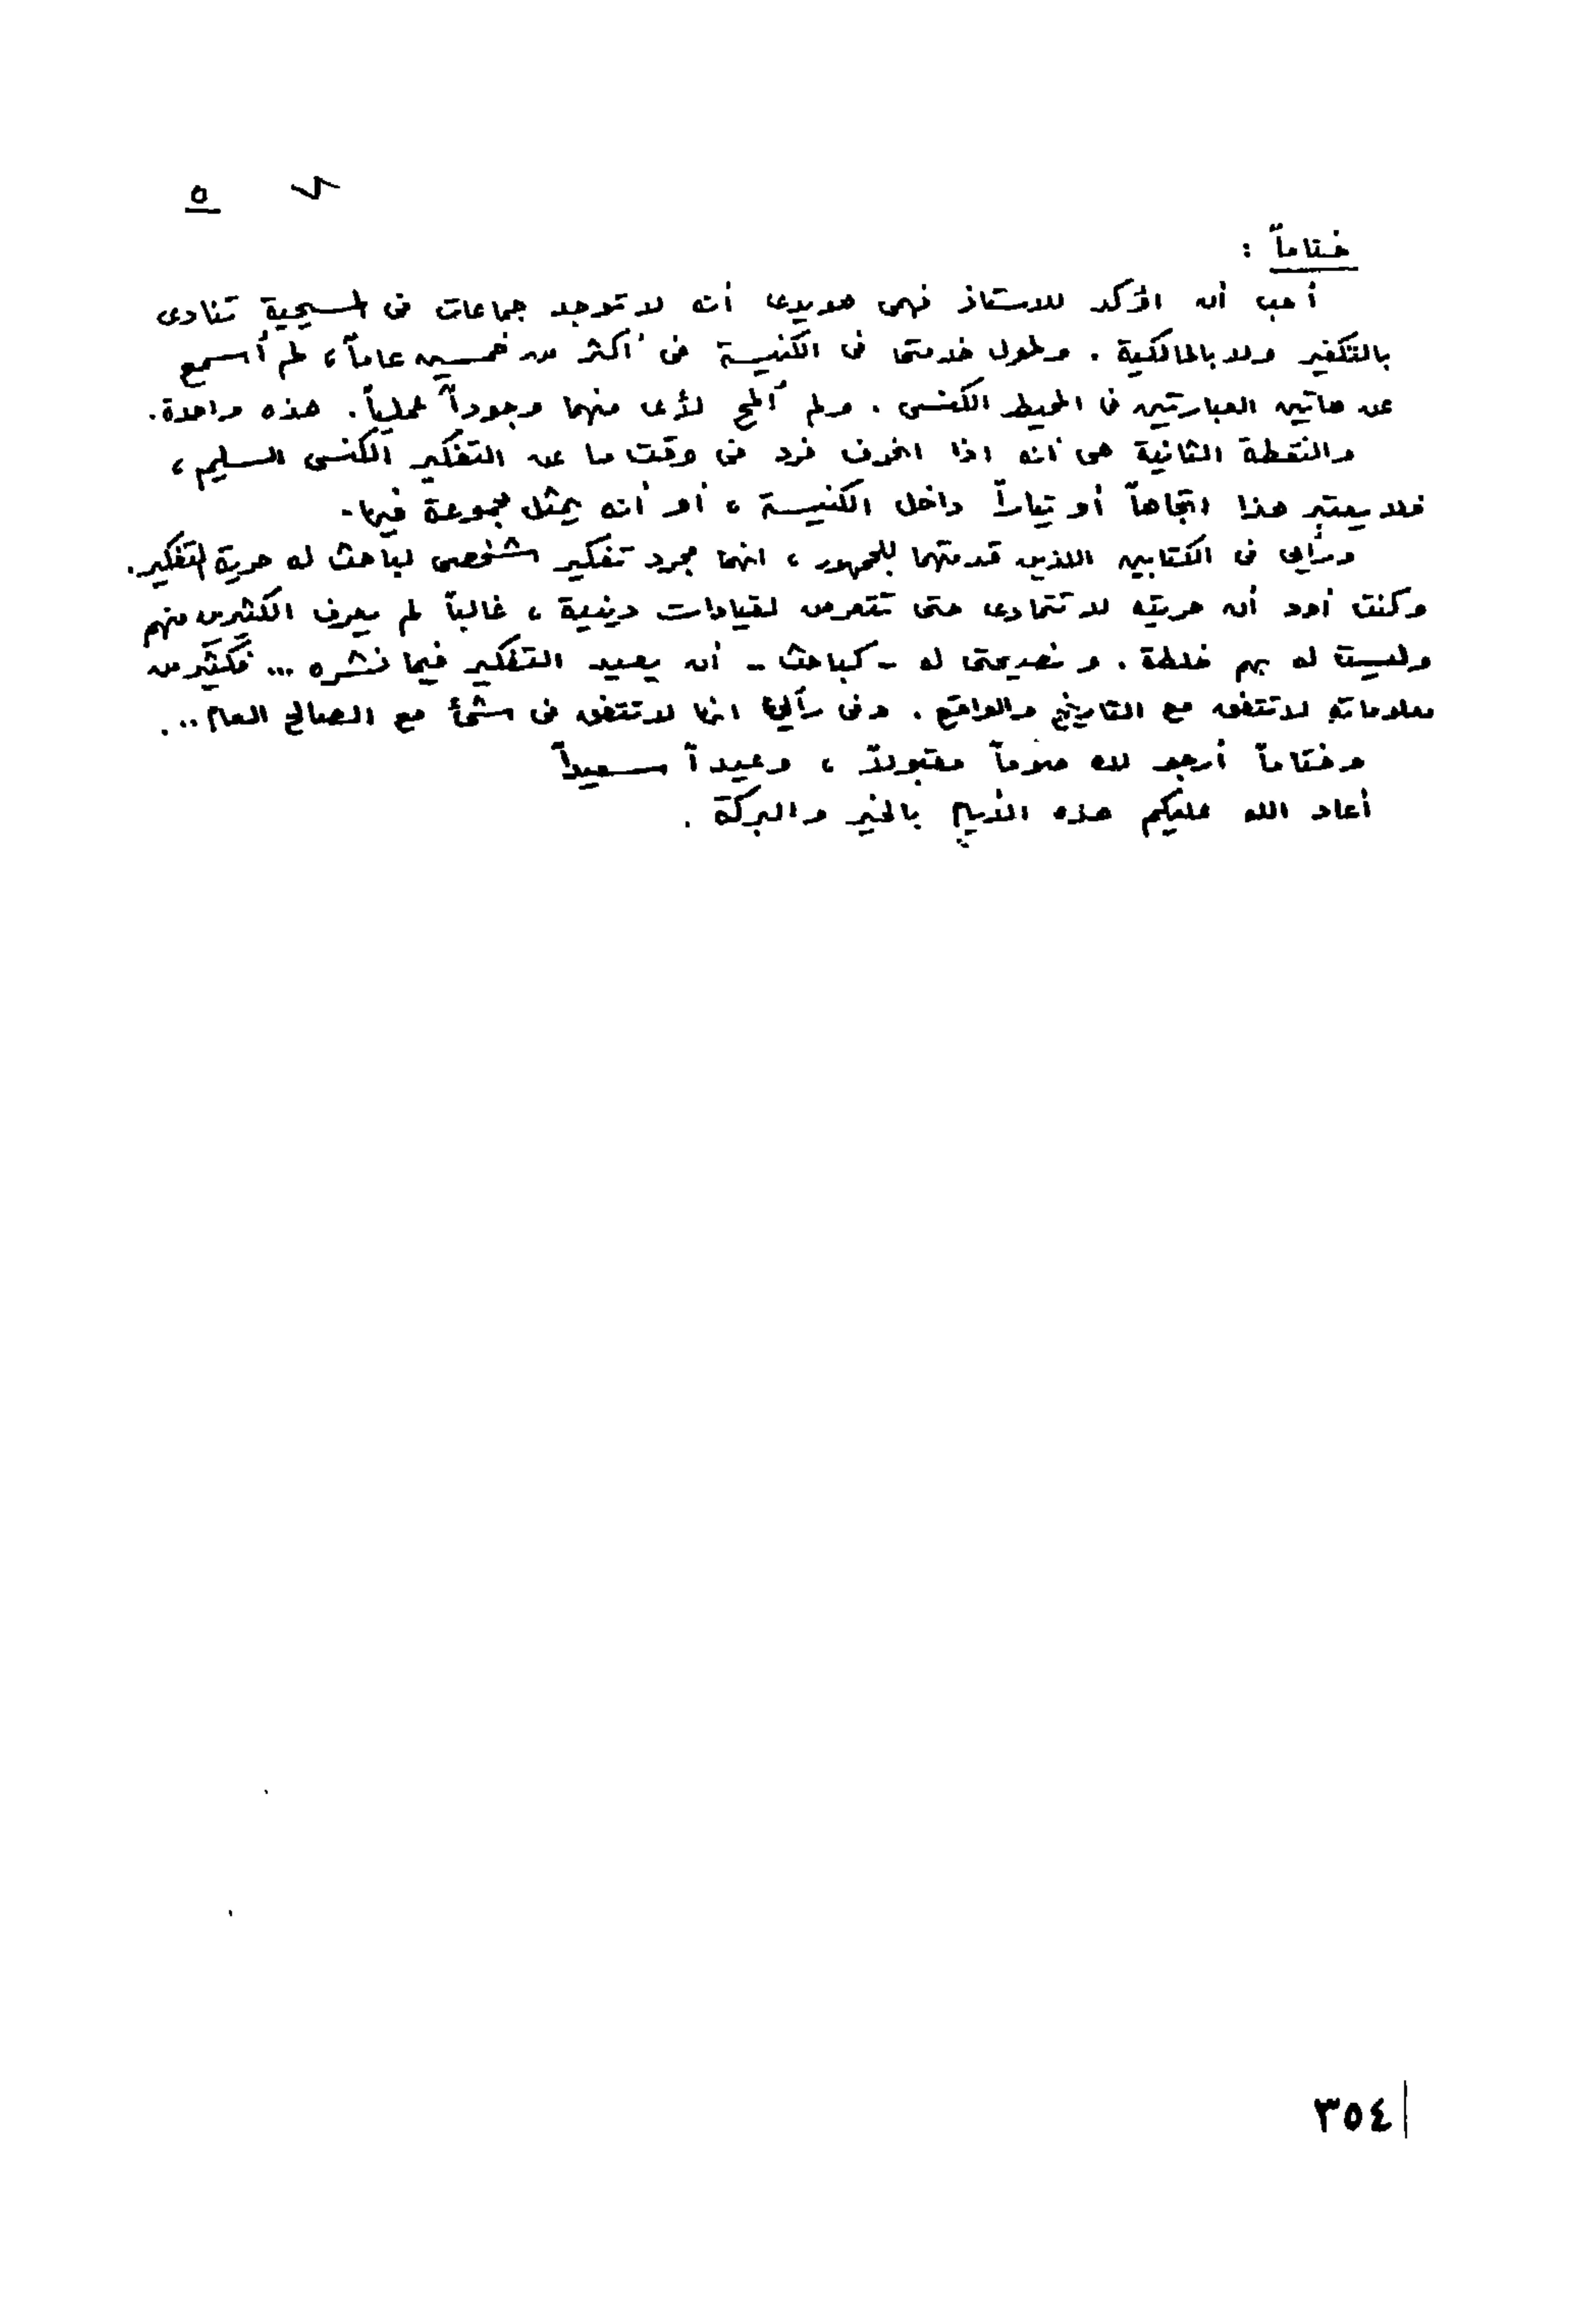 ٥
ختاماً :
أحب أن اؤكد للاستاذ فهمى هويدى أنه لا توجد جماعات فى المسيحية تنادى
بالتكفير ولا بالمالكية . وطول خدمتى فى الكنيسة فى أكثر من خمسين عاماً ، لم أسمع
عن هاتين العبارتين فى المحيط الكنسى . ولم ألمح لأى منهما وجوداً عملياً . هذه واحدة .
والنقطة الثانية هى أنه اذا انحرف فرد فى وقت ما عن التفكير الكنسى السليم ،
فلا يعتبر هذا اتجاهاً أو تياراً داخل الكنيسة ، أو أنه يمثل مجموعة فيها .
ورأيى فى الكتابين اللذين قدمتهما للجمهور ، انهما مجرد تفكير شخصى لباحث له حرية التفكير .
وكنت أود أن حريته لا تتمادى حتى تتعرض لقيادات دينية ، غالباً لم يعرف الكثيرين منهم
وليست له بهم خلطة . ونصيحتى له - كباحث - أن يعيد التفكير فيما نشره ... فكثير من
معلوماته لا تتفق مع التاريخ والواقع . وفى رأيى انها لا تتفق فى شئ مع الصالح العام ...
وختاماً أرجو لك صوماً مقبولاً ، وعيداً سعيداً
أعاد الله عليكم هذه الأيام بالخير والبركة .
٣٥٤